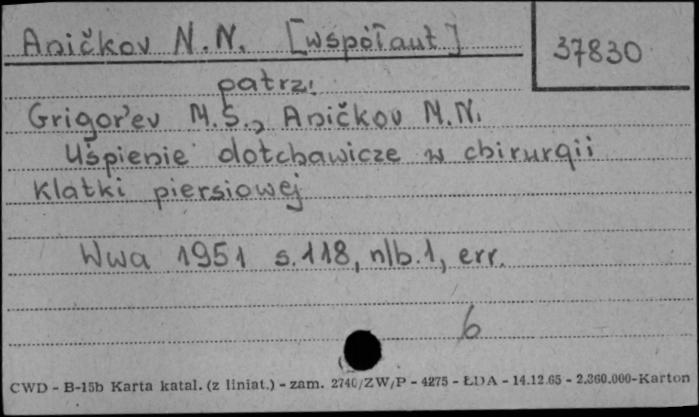 Aničkov N.N. [współaut]
37830
patrz:
Grigor'ev M.S., Aničkov N.N.
Uśpienie dotchawicze w chirurgii
klatki piersiowej
Wwa 1951 s.118, nlb.1, err.
6
CWD - B-15b Karta katal. (z liniat.) - zam. 2740/ZW/P - 4275 - ŁDA - 14.12.65 - 2.360.000-Karton